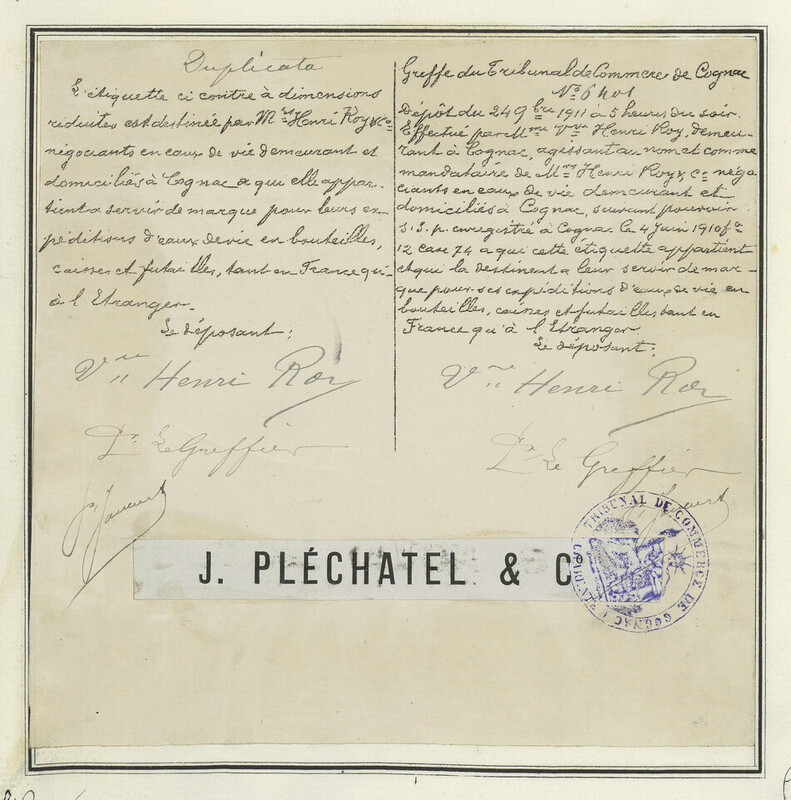 Duplicata
L'étiquette ci contre à dimensions
réduites est destinée par Mrs Henri Roy & Co
négociants en eaux de vie demeurant et
domiciliés à Cognac a qui elle appar-
tient a servir de marque pour leurs ex-
péditions d'eaux de vie en bouteilles,
caisses et futailles, tant en France qu'
à l'Etranger.
Le déposant:
Vve Henri Roy
Pr Le Greffier
Greffe du Tribunal de Commerce de Cognac
No 6401
Dépôt du 24 9bre 1911 à 5 heures du soir.
Effectué par Mme Vve Henri Roy, demeu-
rant à Cognac, agissant au nom et comme
mandataire de Mrs Henri Roy & Co négo-
ciants en eaux de vie demeurant et
domiciliés à Cognac, suivant pouvoir
s.s.p. enregistré à Cognac le 4 Juin 1910 fo
12 case 74 a qui cette étiquette appartient
et qui la destinent a leur servir de mar-
que pour ses expéditions d'eaux de vie en
bouteilles, caisses et futailles tant en
France qu'à l'Etranger.
Le déposant:
Vve Henri Roy
Pr Le Greffier
J. PLÉCHATEL & C
TRIBUNAL DE COMMERCE DE COGNAC